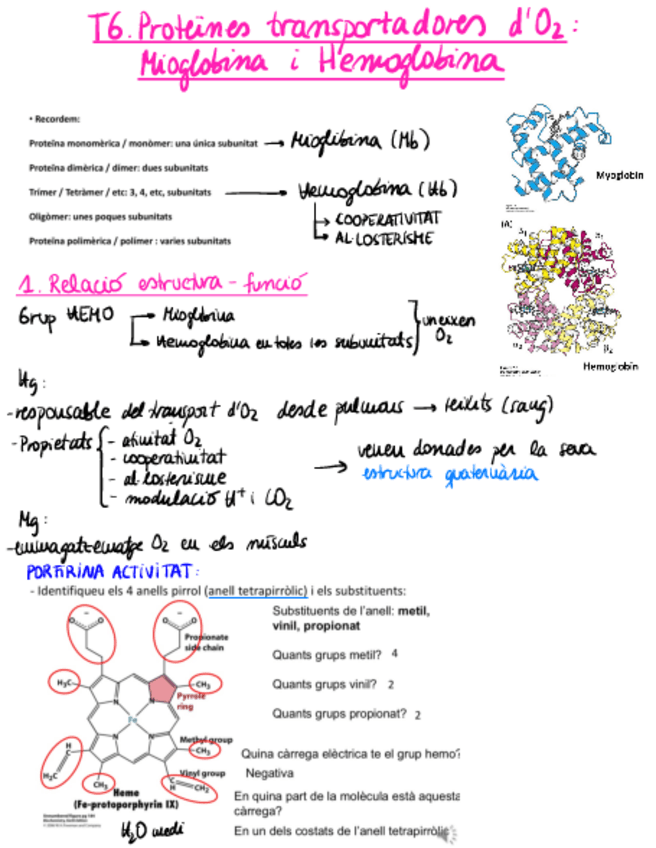 T6. Proteïnes transportadores d'O2:
Mioglobina i Hemoglobina
• Recordem:
Proteïna monomèrica / monòmer: una única subunitat → Mioglibina (Mb)
Proteïna dimèrica / dímer: dues subunitats
Trímer / Tetràmer / etc: 3, 4, etc, subunitats → Hemoglobina (Hb)
↳ COOPERATIVITAT
Oligòmer: unes poques subunitats
↳ AL·LOSTERISME
Proteïna polimèrica / polímer : varies subunitats
Myoglobin
(A)
α1
β1
β2
α2
Hemoglobin
1. Relació estructura - funció
Grup HEMO → Mioglobina
↳ Hemoglobina en totes les subunitats } uneixen O2
Hg:
- responsable del transport d'O2 desde pulmons → teixits (sang)
- Propietats { - afinitat O2
- cooperativitat
- al·losterisme
- modulació H+ i CO2
→ venen donades per la seva
estructura quaternària
Mg:
- emmagatzematge O2 en els músculs
PORFIRINA ACTIVITAT:
- Identifiqueu els 4 anells pirrol (anell tetrapirròlic) i els substituents:
Substituents de l'anell: metil,
vinil, propionat
Propionate
side chain
Quants grups metil? 4
H3C
CH3
Pyrrole
ring
Quants grups vinil? 2
N N
Fe
N N
Quants grups propionat? 2
Methyl group
CH3
Quina càrrega elèctrica te el grup hemo?
Negativa
H
H2C
CH3
Vinyl group
C
H
CH2
Heme
(Fe-protoporphyrin IX)
En quina part de la molècula està aquesta
càrrega?
H2O medi
En un dels costats de l'anell tetrapirròlic